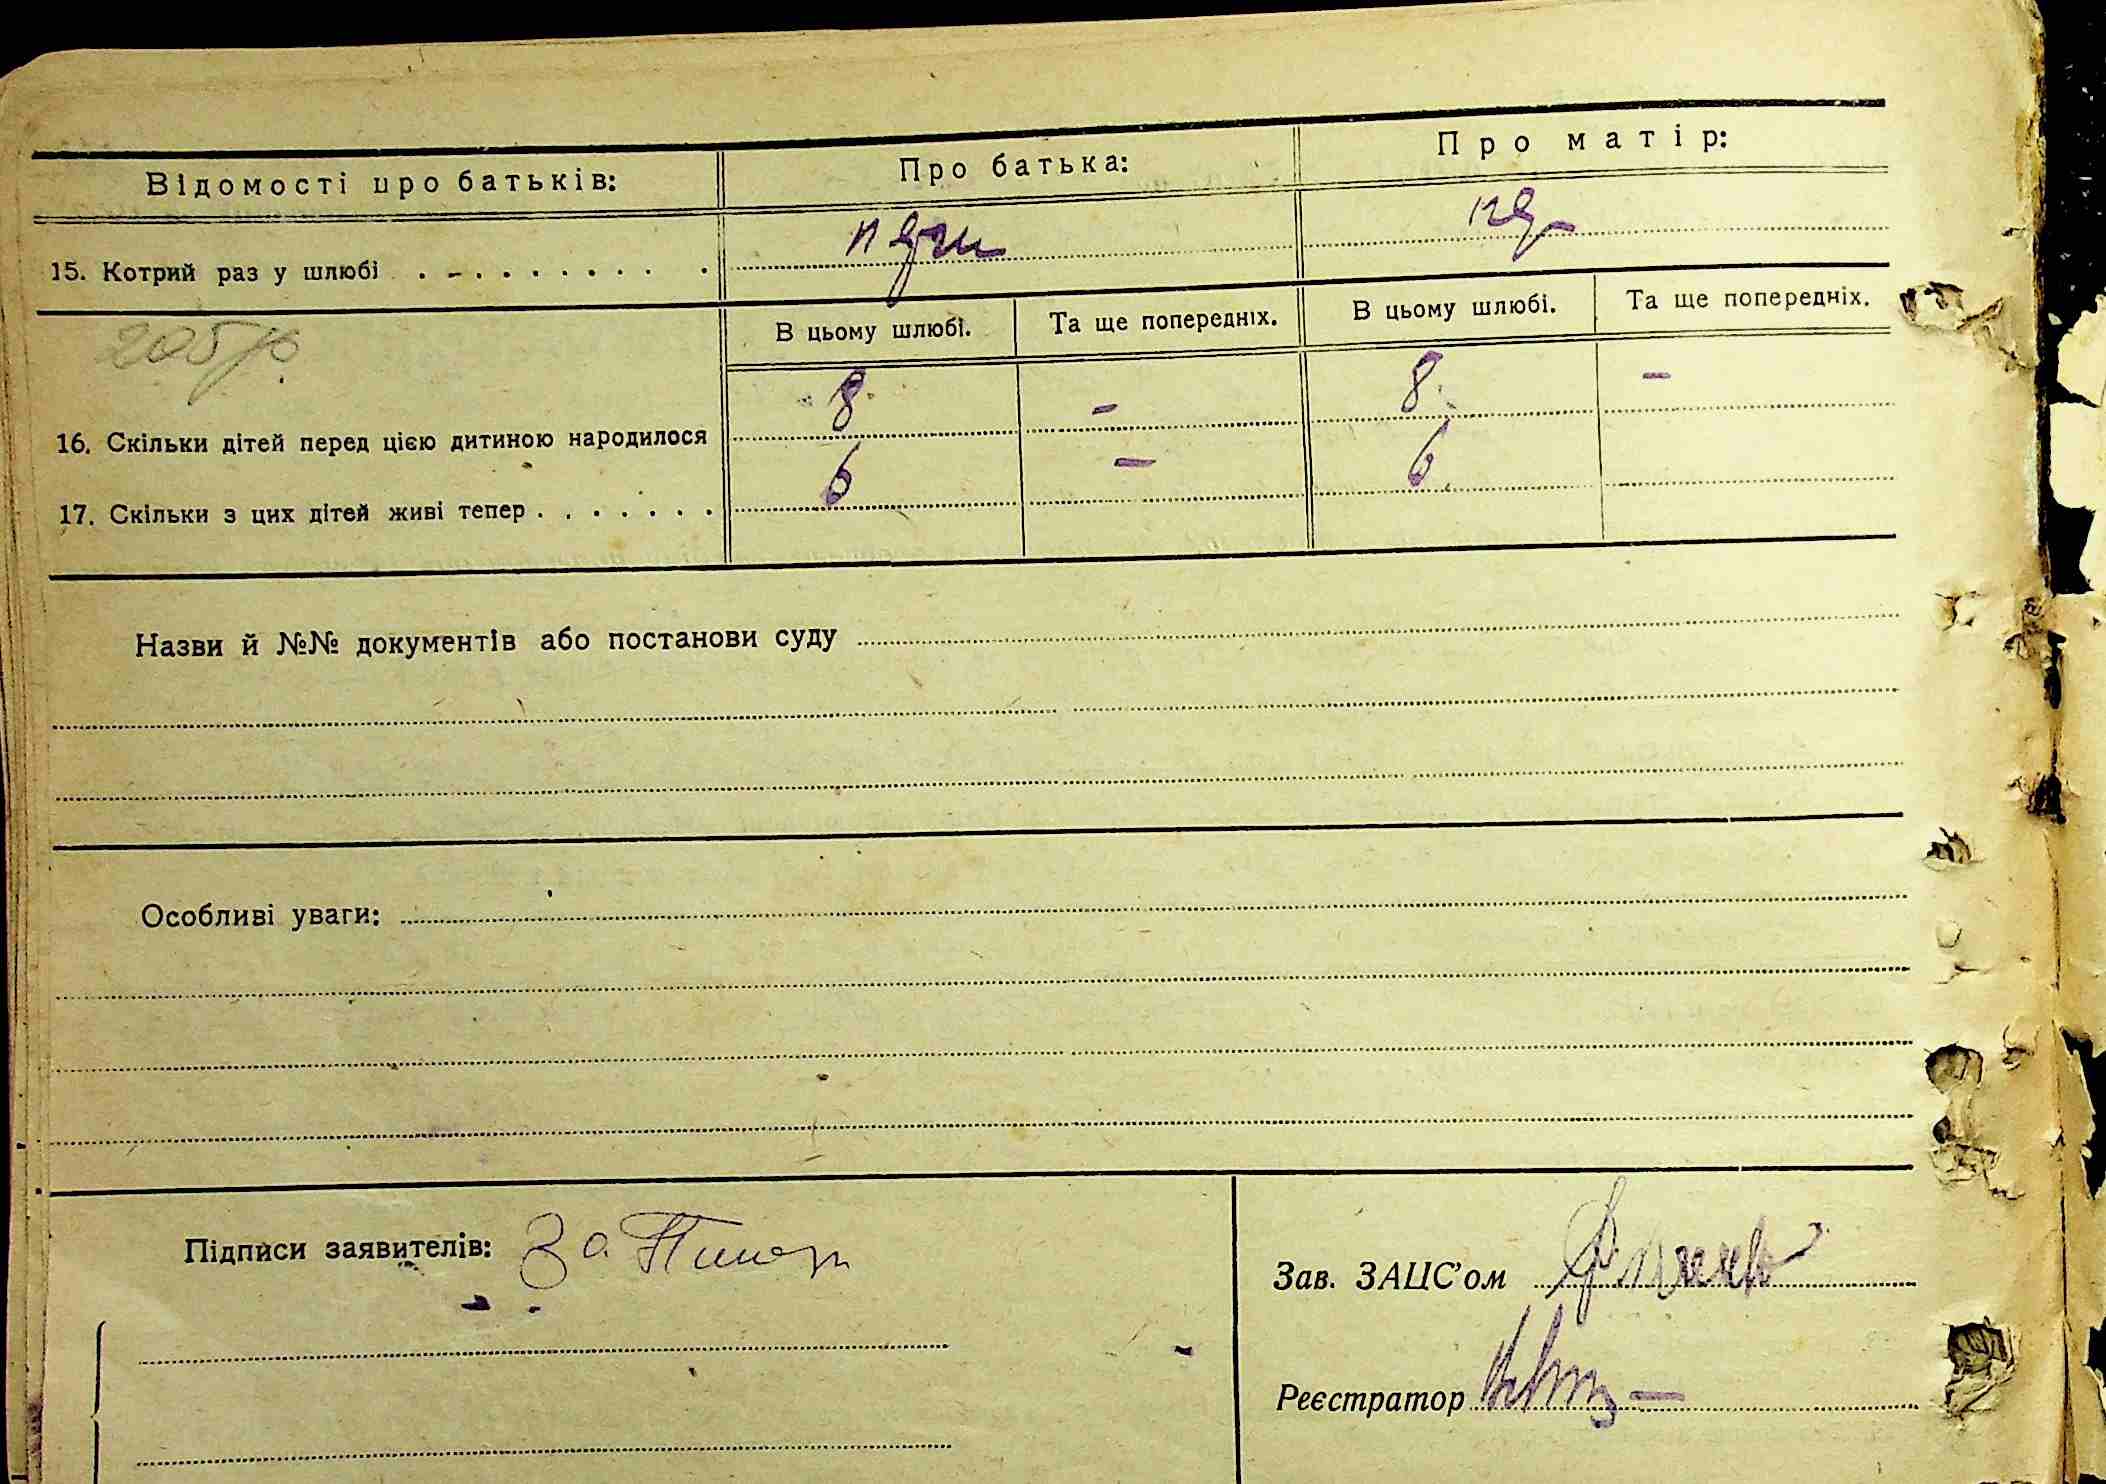 Відомості про батьків: Про батька: Про матір:
15. Котрий раз у шлюбі
В цьому шлюбі. Та ще попередніх. В цьому шлюбі. Та ще попередніх.
16. Скільки дітей перед цією дитиною народилося 8 - 8 -
17. Скільки з цих дітей живі тепер 6 - 6
Назви й №№ документів або постанови суду
Особливі уваги:
Підписи заявителів: За
Зав. ЗАЦС’ом
Реєстратор